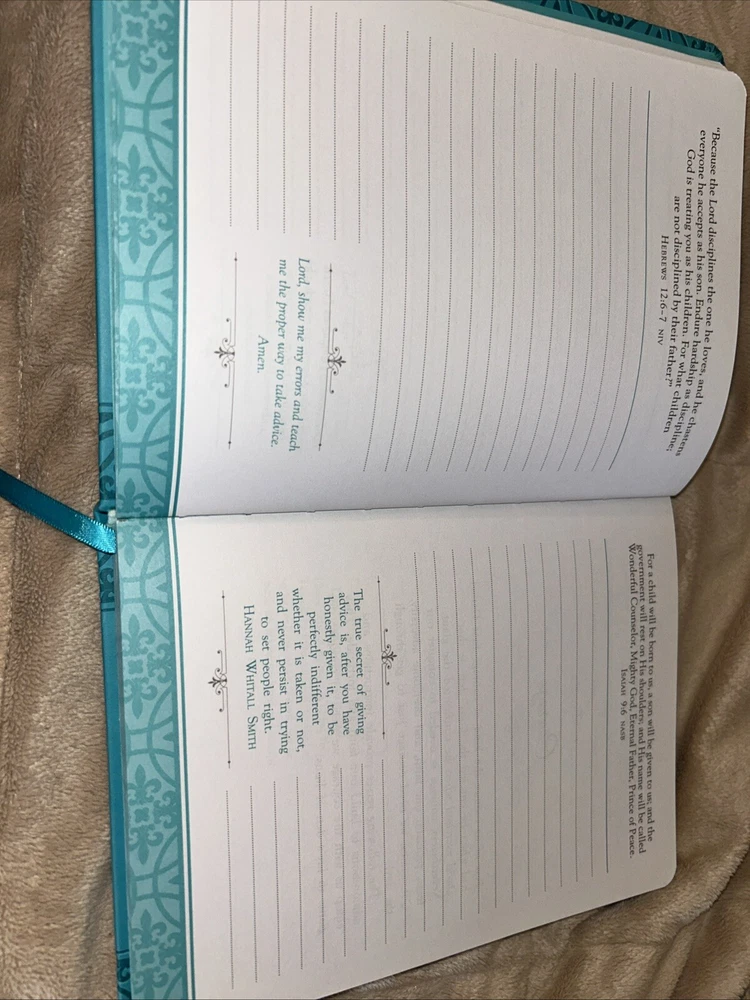 "Because the Lord disciplines the one he loves, and he chastens
everyone he accepts as his son. Endure hardship as discipline;
God is treating you as his children. For what children
are not disciplined by their father?"
HEBREWS 12:6-7 NIV
Lord, show me my errors and teach
me the proper way to take advice.
Amen.
For a child will be born to us, a son will be given to us; and the
government will rest on His shoulders; and His name will be called
Wonderful Counselor, Mighty God, Eternal Father, Prince of Peace.
ISAIAH 9:6 NASB
The true secret of giving
advice is, after you have
honestly given it, to be
perfectly indifferent
whether it is taken or not,
and never persist in trying
to set people right.
HANNAH WHITALL SMITH